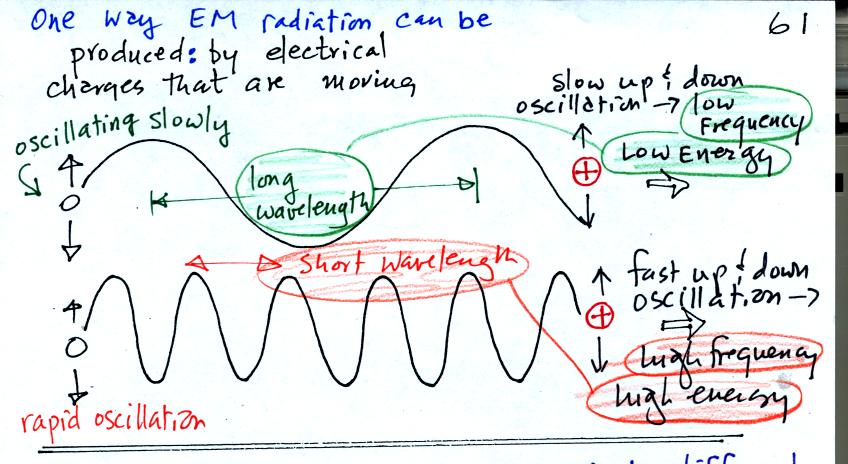 One way EM radiation can be
61
produced: by electrical
charges that are moving
slow up & down
oscillation → low
frequency
Low Energy
oscillating slowly
long
wavelength
short wavelength
fast up & down
oscillation →
high frequency
high energy
rapid oscillation